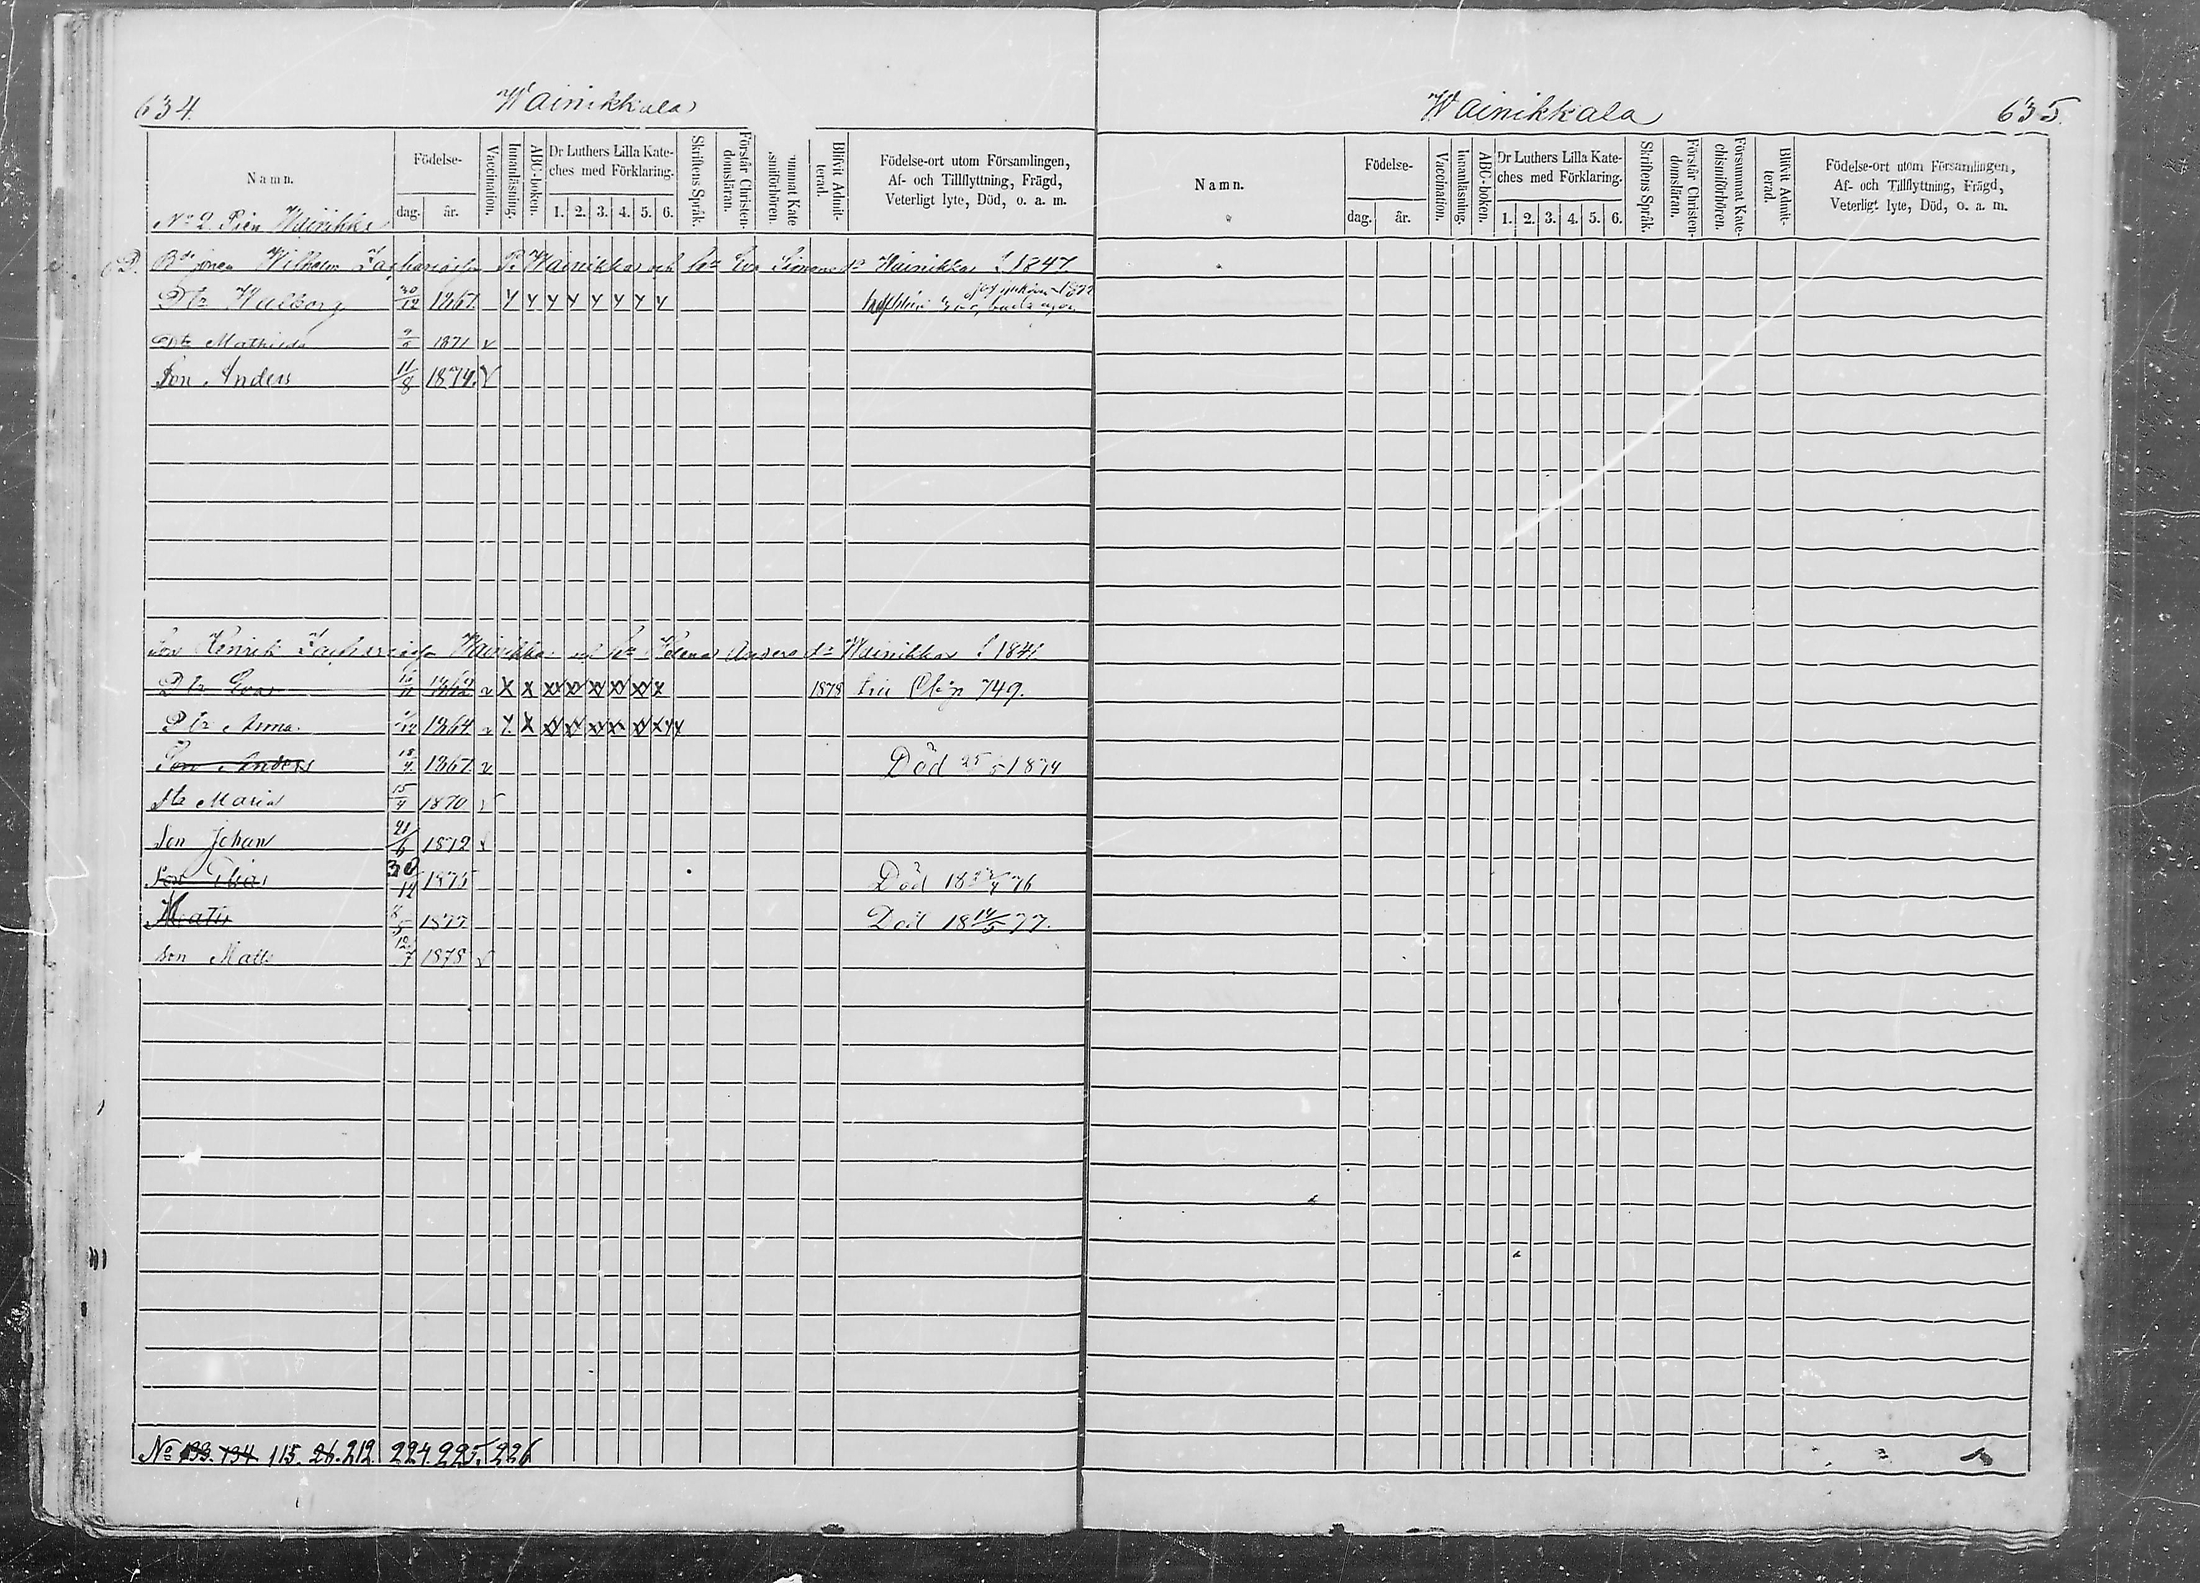 634. Wainikkala
Namn.
Födelse-
dag. år.
Vaccination.
Innanläsning.
ABC-boken.
Dr Luthers Lilla Kate-
ches med Förklaring.
1. 2. 3. 4. 5. 6.
Skriftens Språk.
Förstår Christen-
domsläran.
ummat Kate
smiförhören.
Blifvit Admit-
terad.
Födelse-ort utom Församlingen,
Af- och Tillflyttning, Frägd,
Veterligt lyte, Död, o. a. m.
No 2. Pien Wainikka
Wilhelm Zachariasson Wainikka och Wainikka 1847
Dtr Walborg 30/12 1867
Dtr Mathilda 1871 v
Son Anders 11/8 1874. v
Son Henrik Wainikka och Helena Anders Wainikka
Dtr Eva v x x xx xx xx xx xx x 1878 749.
Dtr Anna. 1864 v
Son Anders 18/4 1867 v Död 25/5 1874
Dtr Maria 15/4 1870 v
Son Johan 21/6 1872
Son 30/12 1875 Död 18 76
Matts 8/5 1877 Död 18 14/5 77.
Son Matts 12/7 1878 v
No 133. 134 115. 26. 212. 224. 225. 226
Wainikkala 635.
Namn.
Födelse-
dag. år.
Vaccination.
Innanläsning.
ABC-boken.
Dr Luthers Lilla Kate-
ches med Förklaring.
1. 2. 3. 4. 5. 6.
Skriftens Språk.
Förstår Christen-
domsläran.
Försummat Kate-
chismiförhören.
Blifvit Admit-
terad.
Födelse-ort utom Församlingen,
Af- och Tillflyttning, Frägd,
Veterligt lyte, Död, o. a. m.